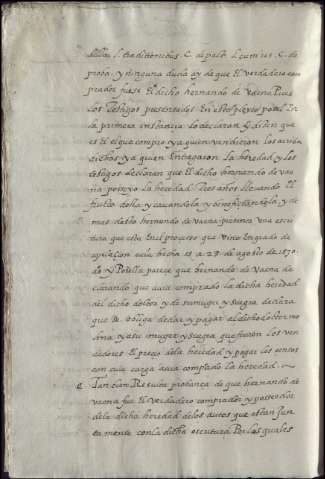 y ninguna duda ay de que El verdadero com
prador fuese El dicho hernando de Vaena Pues
Los testigos presentados En este pleyto por el En
la primera instancia lo declaran y dizen que
es El que compro y a quien vendieron los arriba
dichos y a quien Entregaron la heredad y los
testigos declaran que El dicho hernando de vae
na poseyo la heredad tres años llevando El
fruto della y cavandola y beneficiandola y de
mas dello hernando de vaena presenta una escri
tura que esta En el proceso que vino En grado de
apelacion hecha a 28 de agosto de 1570
Por ella parece que hernando de Vaena de
clarando que avia comprado la dicha heredad
del dicho doctor y de su muger y suegra declara
que se obliga de dar y pagar al dicho doctor mo
lina y a su muger y suegra que fueron los ven
dedores El precio de la heredad y pagar los censos
con cuia carga avia comprado la heredad
Tanbien Resulta probança de que hernando de
vaena fue El verdadero comprador y poseedor
de la dicha heredad de los autos que estan jun
tamente con la dicha escritura Por los quales